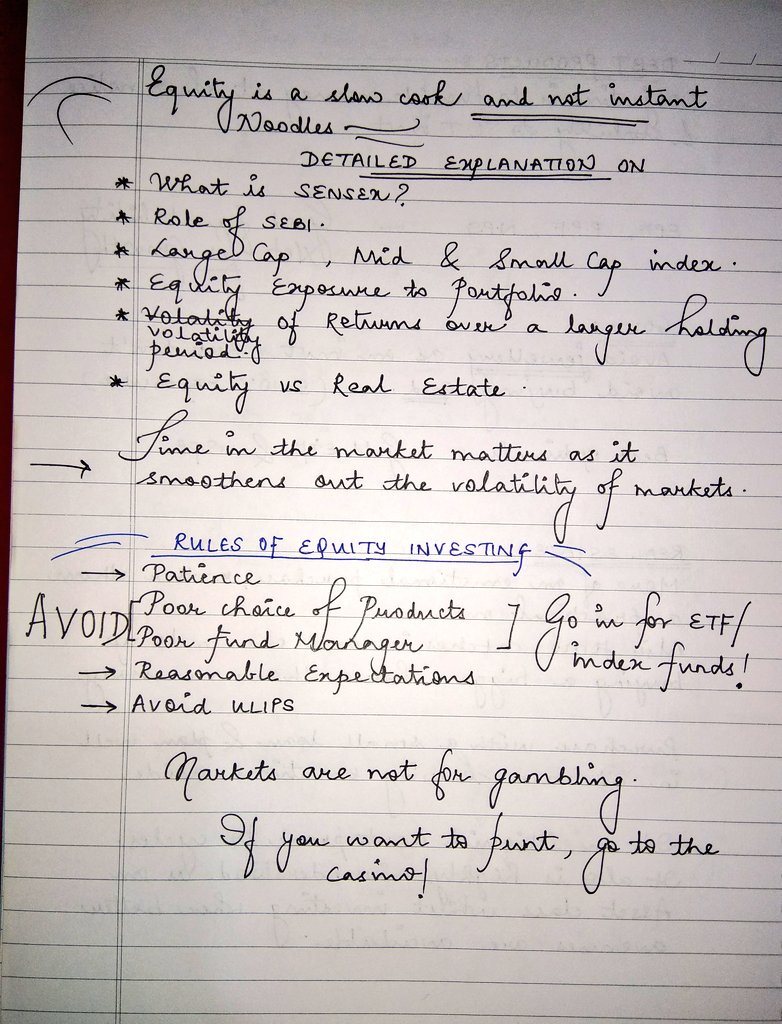 Equity is a slow cook and not instant
Noodles
DETAILED EXPLANATION ON
* What is SENSEX?
* Role of SEBI.
* Large Cap, Mid & Small Cap index.
* Equity Exposure to Portfolio.
* Volatility of Returns over a larger holding
volatility
period.
* Equity vs Real Estate.
→ Time in the market matters as it
smoothens out the volatility of markets.
RULES OF EQUITY INVESTING
→ Patience
AVOID [Poor choice of Products
Poor fund Manager ] Go in for ETF/
index funds!
→ Reasonable Expectations
→ Avoid ULIPS
Markets are not for gambling.
If you want to punt, go to the
casino!